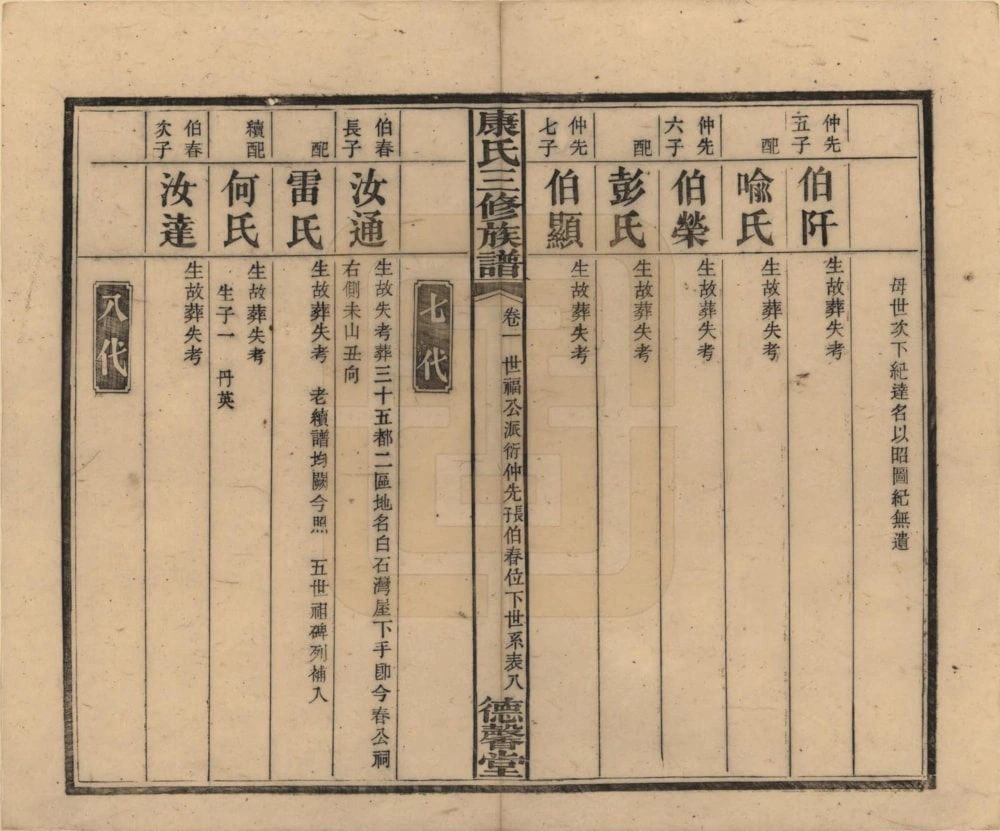 毋世次下紀達名以昭圖紀無遺
仲先
五子
伯阡
生故葬失考
配
喻氏
生故葬失考
仲先
六子
伯榮
生故葬失考
配
彭氏
生故葬失考
仲先
七子
伯顯
生故葬失考
康氏三修族譜
卷一
世福公派衍仲先長子伯春位下世系表八
德馨堂
七代
伯春
長子
汝通
生故失考葬三十五都二區地名白石灣屋下手卽今春公祠
右側未山丑向
配
雷氏
生故葬失考 老續譜均闕今照 五世祖碑列補入
續配
何氏
生故葬失考
生子一 丹英
伯春
次子
汝達
生故葬失考
八代